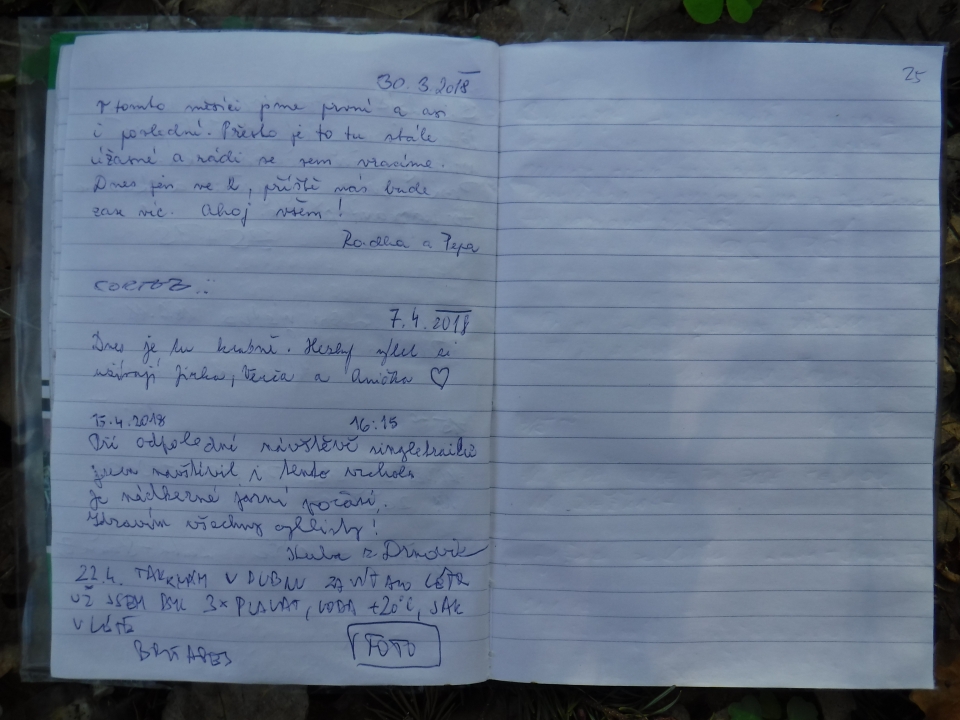 30.3.2018
V tomto měsíci jsme první a asi
i poslední. Přesto je to tu stále
úžasné a rádi se sem vracíme.
Dnes jen ve 2, příště nás bude
zas víc. Ahoj všem!
Radka a Pepa
7.4.2018
Dnes je tu krásně. Hezký výlet si
užívají Jirka, Verča a Anička ♡
15.4.2018 16:15
Při odpolední návštěvě singletrailů
jsem navštívil i tento vrchol.
Je nádherné jarní počasí.
Zdravím všechny cyklisty!
Kuba z
22.4. TAK NÁM V DUBNU ZAVÍTALO LÉTO
UŽ JSEM BYL 3x PLAVAT, VODA +20°C, JAK
V LÉTĚ
FOTO
25